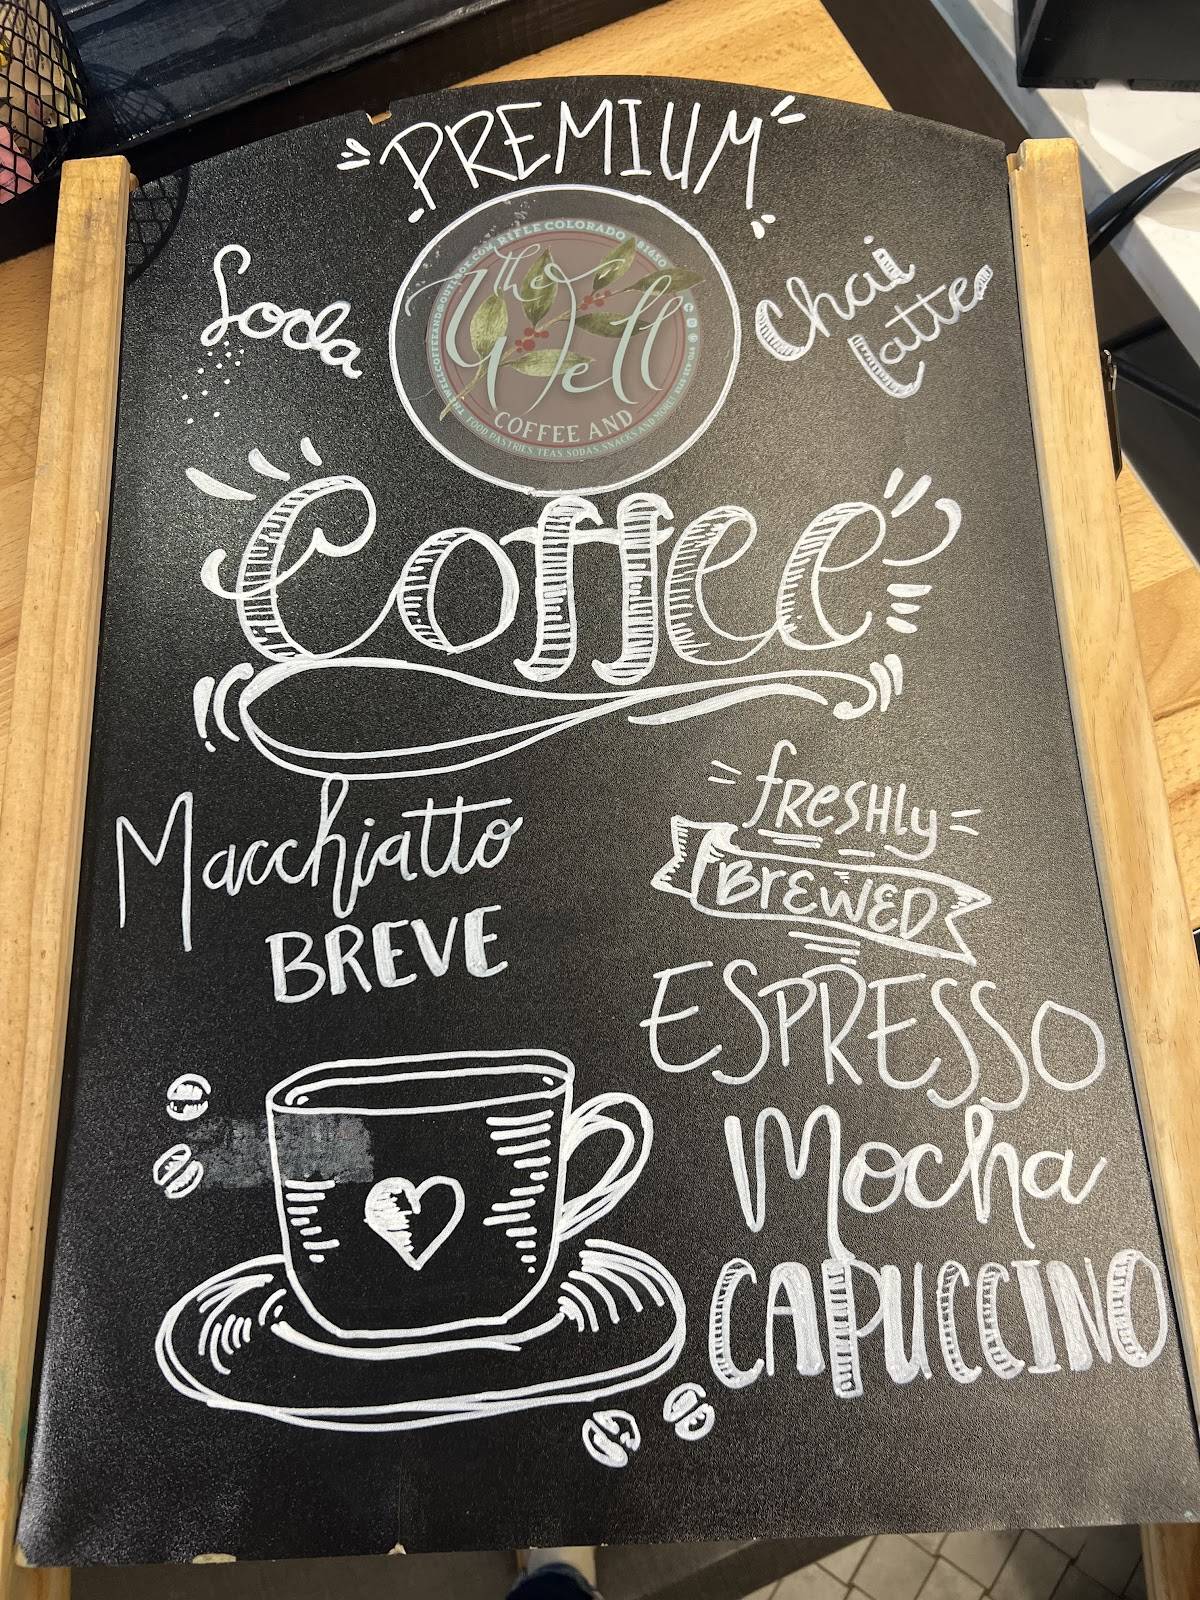 PREMIUM
Soda
RIFLE COLORADO 81650
The Well
COFFEE AND
FOOD, PASTRIES, TEAS, SODAS, SNACKS AND MORE
Chai
Latte
Coffee
Macchiatto
BREVE
freshly
BREWED
ESPRESSO
Mocha
CAPUCCINO